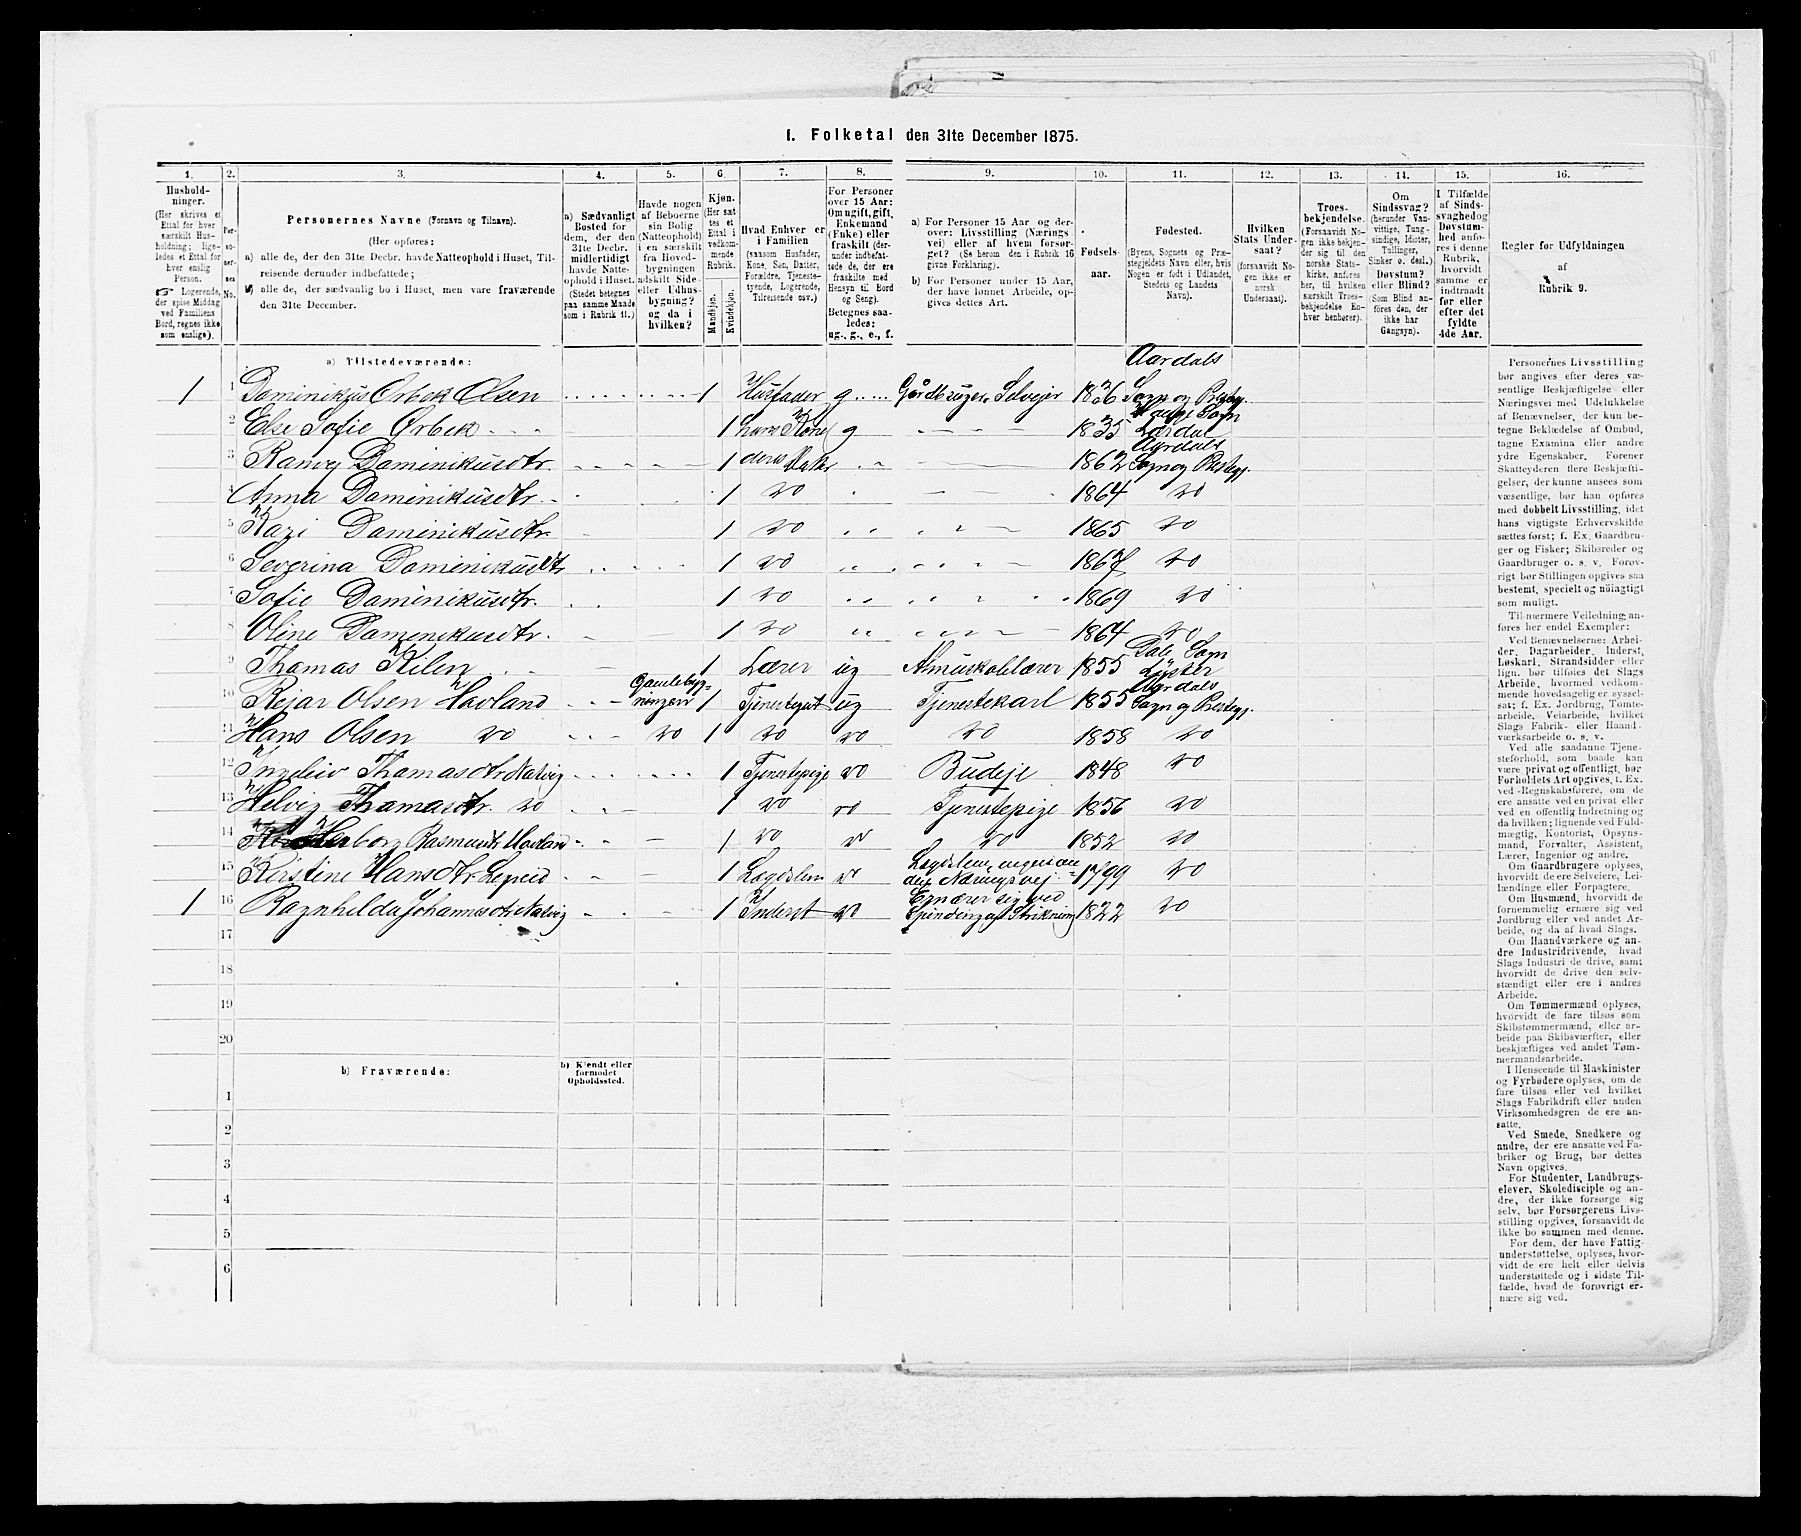 I. Folketal den 31te December 1875.
1. 2. 3. 4. 5. 6. 7. 8. 9. 10. 11. 12. 13. 14. 15. 16.
Hushold-
ninger.
(Her skrives et
Ettal for hver
særskilt Hus-
holdning; lige-
ledes et Ettal for
hver enslig
Person.
☞ Logerende,
der spise Middag
ved Familiens
Bord, regnes ikke
som enslige).
Per-
so-
ner-
nes
No.
Personernes Navne (Fornavn og Tilnavn).
(Her opføres:
a) alle de, der den 31te Decbr. havde Natteophold i Huset, Til-
reisende derunder indbefattede;
b) alle de, der sædvanlig bo i Huset, men vare fraværende
den 31te December.
a) Sædvanligt
Bosted for
dem, der den
31te Decbr.
midlertidigt
havde Natte-
ophold i Huset.
(Stedet betegnes
paa samme Maade
som i Rubrik 11.)
Havde nogen
af Beboerne
sin Bolig
(Natteophold)
i en særskilt
fra Hoved-
bygningen
adskilt Side-
eller Udhus-
bygning?
og da i
hvilken?
Kjøn.
(Her sæt-
tes et
Ettal i
vedkom-
mende
Rubrik.
Mandkjøn.
Kvindekjøn.
Hvad Enhver er
i Familien
(saasom Husfader,
Kone, Søn, Datter,
Forældre, Tjeneste-
tyende, Logerende,
Tilreisende osv.)
For Personer
over 15 Aar:
Om ugift, gift,
Enkemand
(Enke) eller
fraskilt (der-
under indbefat-
tede de, der ere
fraskilte med
Hensyn til Bord
og Seng).
Betegnes saa-
ledes:
ug., g., e., f.
a) For Personer 15 Aar og der-
over: Livsstilling (Nærings-
vei) eller af hvem forsør-
get? (Se herom den i Rubrik 16
givne Forklaring).
b) For Personer under 15 Aar,
der have lønnet Arbeide, op-
gives dettes Art.
Fødsels-
aar.
Fødested.
(Byens, Sognets og Præ-
stegjeldets Navn eller, hvis
Nogen er født i Udlandet,
Stedets og Landets
Navn).
Hvilken
Stats Under-
saat?
(forsaavidt No-
gen ikke er
norsk
Undersaat).
Troes-
bekjendelse.
(Forsaavidt No-
gen ikke bekjen-
der sig til den
norske Stats-
kirke, anføres
her, til hvilken
særskilt Troes-
bekjendelse En-
hver henhører).
Om
Sindssvag?
(herunder Van-
vittige, Tung-
sindige, Idioter,
Tullinger,
Sinker o. desl.)
Døvstum?
eller Blind?
(Som Blind an-
føres den, der
ikke har
Gangsyn).
I Tilfælde
af Sinds-
svaghed og
Døvstum-
hed anfø-
res i denne
Rubrik,
hvorvidt
samme er
indtraadt
før eller
efter det
fyldte
4de Aar.
Regler for Udfyldningen
af
Rubrik 9.
a) Tilstedeværende:
Aardals
1 1 Dominikus Ørbek Olsen 1 Husfader g Gårdbruger, Selveier 1836 Sogn og Presteg.
2 Else Sofie Ørbek 1 hans Kone g 1835 Sogn Lærdal
Aardals
3 Ranvei Dominikusdtr. 1 deres Dater 1862 Sogn og Presteg.
4 Anna Dominikusdtr. 1 do 1864 do
5 Kari Dominikusdtr. 1 do 1865 do
6 Severina Dominikusdtr. 1 do 1867 do
7 Sofie Dominikusdtr. 1 do 1869 do
8 Oline Dominikusdtr. 1 do 1864 do
9 Thomas Kilen 1 Lærer ug Almuskolelærer 1855 Dale Sogn Lyster
10 Reiar Olsen Hovland Gamlebyg-
ningen 1 Tjenestegut ug Tjenestekarl 1855 Aardals Sogn og Presteg.
11 Hans Olsen do do 1 do do do 1858 do
12 Ingeleiv Thomasdtr Natvig 1 Tjenestepige do Budeje 1848 do
13 Helvig Thomasdtr. do 1 do do Tjenestepige 1856 do
14 Rasmusdtr Hovland 1 do do do 1852 do
15 Kirstine Hansdtr. 1 Lægdslem do Lægdslem, ingen an-
den Næringsvej 1799 do
1 16 Ragnhelda Johannesdtr Natvig 1 Inderst do Ernærer sig ved
Spinding og Strikning 1822 do
17
18
19
20
b) Fraværende:
b) Kjendt eller
formodet
Opholdssted.
1
2
3
4
5
6
Personernes Livsstilling
bør angives efter deres væ-
sentlige Beskjæftigelse eller
Næringsvei med Udelukkelse
af Benævnelser, der kun be-
tegne Beklædelse af Ombud,
tagne Examina eller andre
ydre Egenskaber. Forener
Skatteyderen flere Beskjæfti-
gelser, der kunne ansees som
væsentlige, bør han opføres
med dobbelt Livsstilling, idet
hans vigtigste Erhvervskilde
sættes først; f. Ex. Gaardbru-
ger og Fisker; Skibsreder og
Gaardbruger o. s. v. Forøv-
rigt bør Stillingen opgives saa
bestemt, specielt og nøiagtigt
som muligt.
Til nærmere Veiledning an-
føres her endel Exempler:
Ved Benævnelserne: Arbei-
der, Dagarbeider, Inderst,
Løskarl, Strandsidder eller
lign. bør tilføies det Slags
Arbeide, hvormed vedkom-
mende hovedsagelig er syssel-
sat; f. Ex. Jordbrug, Tomte-
arbeide, Veiarbeide, hvilket
Slags Fabrik- eller Haand-
værksarbeide o. s. v.
Ved alle saadanne Tjene-
steforhold, som baade kan
være privat og offentligt, bør
Forholdets Art opgives, t. Ex.
ved Regnskabsførere, om de
ere ansatte ved en privat eller
ved en offentlig Indretning og
da hvilken; lignende ved Fuld-
mægtig, Kontorist, Opsyns-
mand, Forvalter, Assistent,
Lærer, Ingeniør og andre.
Om Gaardbrugere oplyses,
hvorvidt de ere Selveiere, Lei-
lændinge eller Forpagtere.
Om Husmænd, hvorvidt de
fornemmelig ernære sig ved
Jordbrug eller ved andet Ar-
beide, og da af hvad Slags.
Om Haandværkere og an-
dre Industridrivende, hvad
Slags Industri de drive, samt
hvorvidt de drive den selv-
stændigt eller ere i andres
Arbeide.
Om Tømmermænd oplyses,
hvorvidt de fare tilsøs som
Skibstømmermænd, eller ar-
beide paa Skibsværfter, eller
beskjæftiges ved andet Tøm-
mermandsarbeide.
I Henseende til Maskinister
og Fyrbødere oplyses, om de
fare tilsøs eller ved hvilket
Slags Fabrikdrift eller anden
Virksomhedsgren de ere an-
satte.
Ved Smede, Snedkere og
andre, der ere ansatte ved Fa-
briker og Brug, bør dettes
Navn opgives.
For Studenter, Landbrugs-
elever, Skoledisciple og an-
dre, der ikke forsørge sig
selv, bør Forsørgerens Livs-
stilling opgives, forsaavidt de
ikke bo sammen med denne.
For dem, der have Fattig-
understøttelse, oplyses, hvor-
vidt de ere helt eller delvis
understøttede og i sidste Til-
fælde, hvad de forøvrigt er-
nære sig ved.